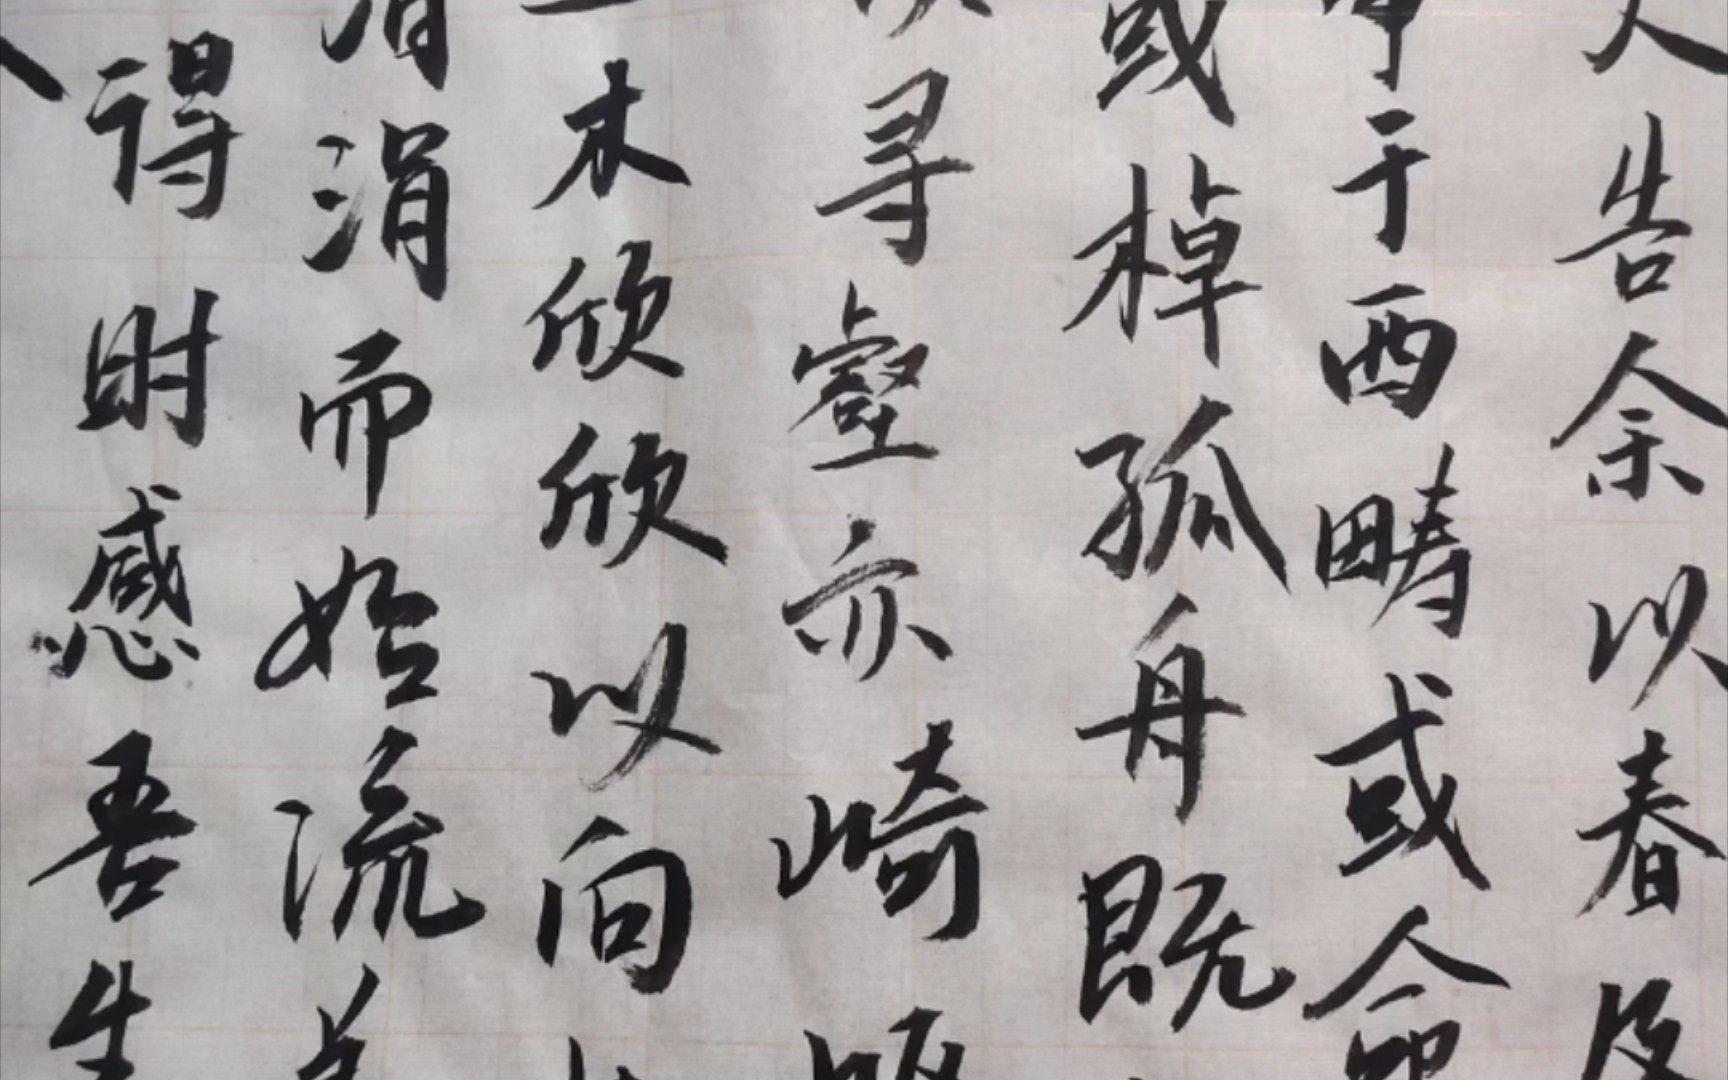 人告余以春及
事于西畴或命
或棹孤舟既
以寻壑亦崎
木欣欣以向
涓涓而始流羡
得时感吾生